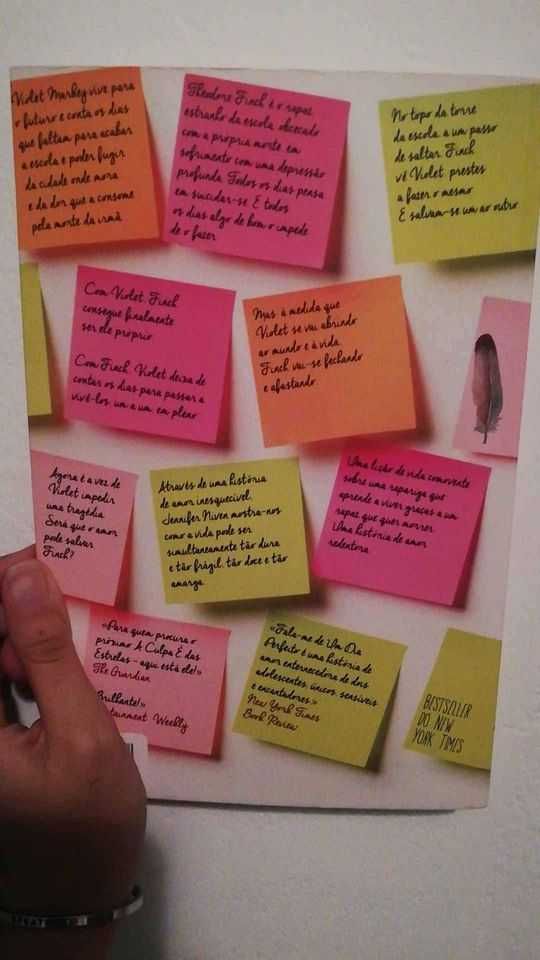 Violet Markey vive para
o futuro e conta os dias
que faltam para acabar
a escola e poder fugir
da cidade onde mora
e da dor que a consome
pela morte da irmã.
Theodore Finch é o rapaz
estranho da escola, obcecado
com a própria morte, em
sofrimento com uma depressão
profunda. Todos os dias pensa
em suicidar-se. E todos
os dias algo de bom o impede
de o fazer.
No topo da torre
da escola, a um passo
de saltar, Finch
vê Violet, prestes
a fazer o mesmo.
E salvam-se um ao outro.
Com Violet, Finch
consegue finalmente
ser ele próprio.
Com Finch, Violet deixa de
contar os dias para passar a
vivê-los, um a um, em pleno.
Mas, à medida que
Violet se vai abrindo
ao mundo e à vida,
Finch vai-se fechando
e afastando.
Agora é a vez de
Violet impedir
uma tragédia.
Será que o amor
pode salvar
Finch?
Através de uma história
de amor inesquecível,
Jennifer Niven mostra-nos
como a vida pode ser
simultaneamente tão dura
e tão frágil, tão doce e tão
amarga.
Uma lição de vida comovente
sobre uma rapariga que
aprende a viver graças a um
rapaz que quer morrer.
Uma história de amor
redentora.
«Para quem procura o
próximo A Culpa É das
Estrelas – aqui está ele!»
The Guardian
Brilhante!»
Weekly
«Fala-me de Um Dia
Perfeito é uma história de
amor enternecedora de dois
adolescentes, únicos, sensíveis
e encantadores.»
New York Times
Book Review
BESTSELLER
DO NEW
YORK TIMES